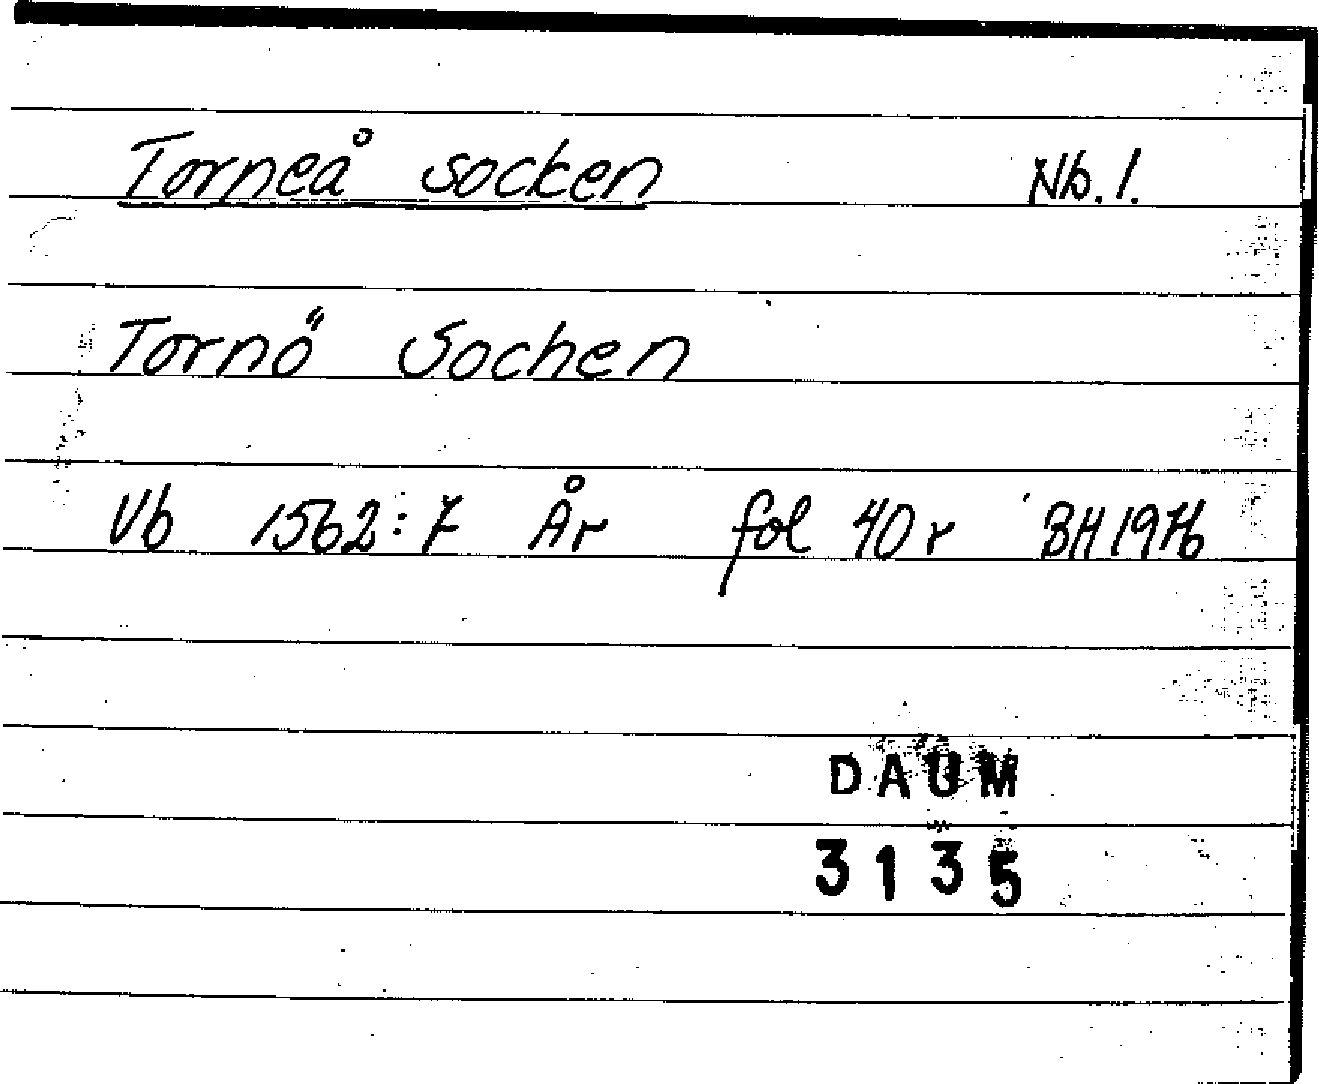 Torneå socken Nb. l.
Tornö Sochen
Vb 1562:7 År fol 40 r BH 1976
DAUM
3135